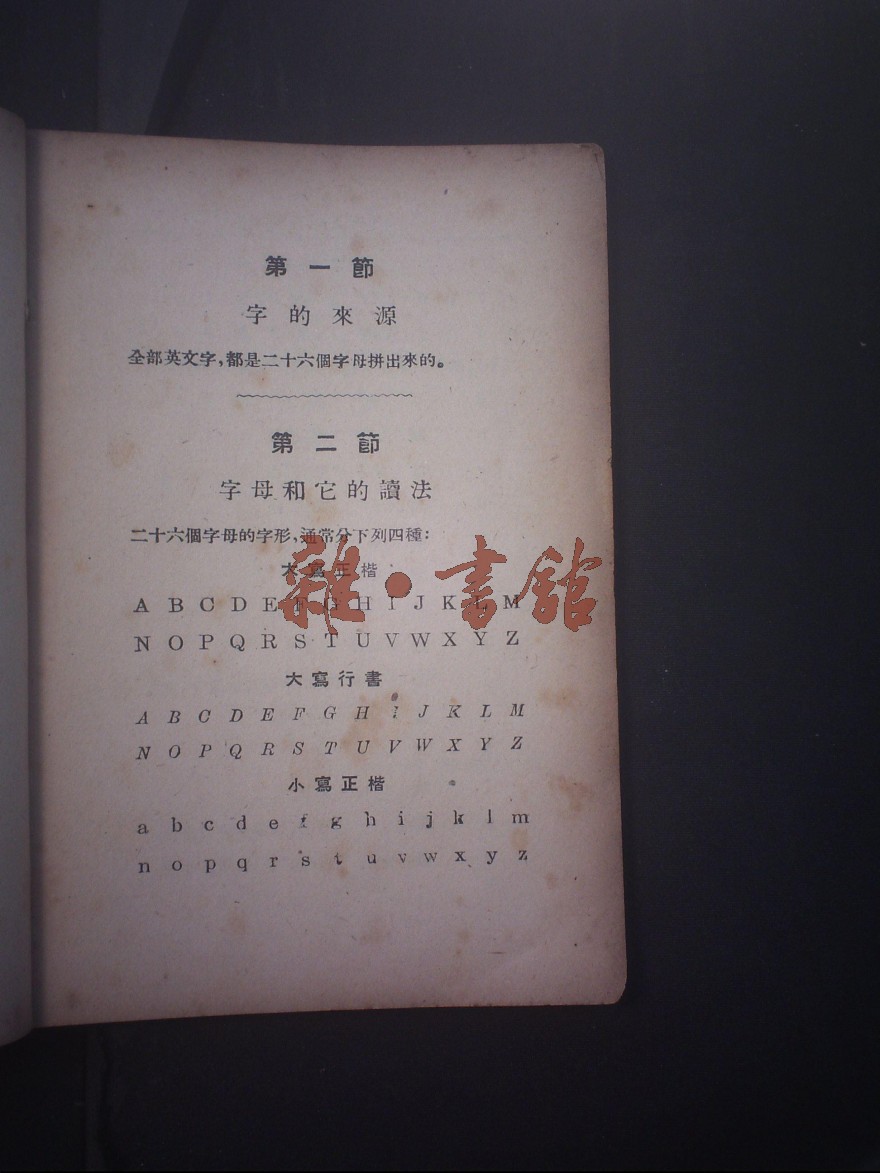 第一節
字的來源
全部英文字,都是二十六個字母拼出來的。
第二節
字母和它的讀法
二十六個字母的字形,通常分下列四種:
大寫正楷
A B C D E F G H I J K L M
N O P Q R S T U V W X Y Z
雜·書館
大寫行書
A B C D E F G H I J K L M
N O P Q R S T U V W X Y Z
小寫正楷
a b c d e f g h i j k l m
n o p q r s t u v w x y z